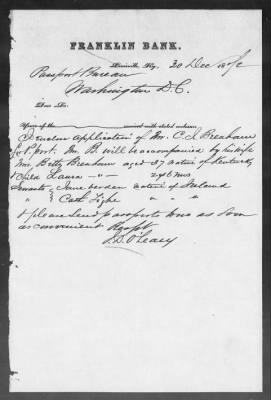 FRANKLIN BANK.
Louisville, Ky. 20 Dec
Passport Bureau
Washington D.C.
Dear Sir:
Yours of the received with stated enclosures
I enclose application of Mr. C. T. Bresham
for P.port. Mr. B. will be accompanied by his wife
Mrs Betty Bresham aged 37 native of Kentucky
& Child Laura " — " 2 y 6 mos
Servants Jane native of Ireland
" Cath Tighe " " "
& please send passports to us as soon
as convenient Respt
J. D. O'Leary